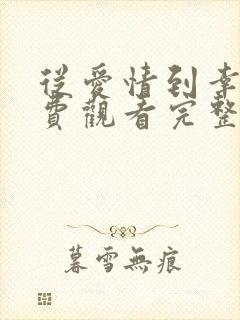 從愛情到幸
費觀看完整
暮雪無痕